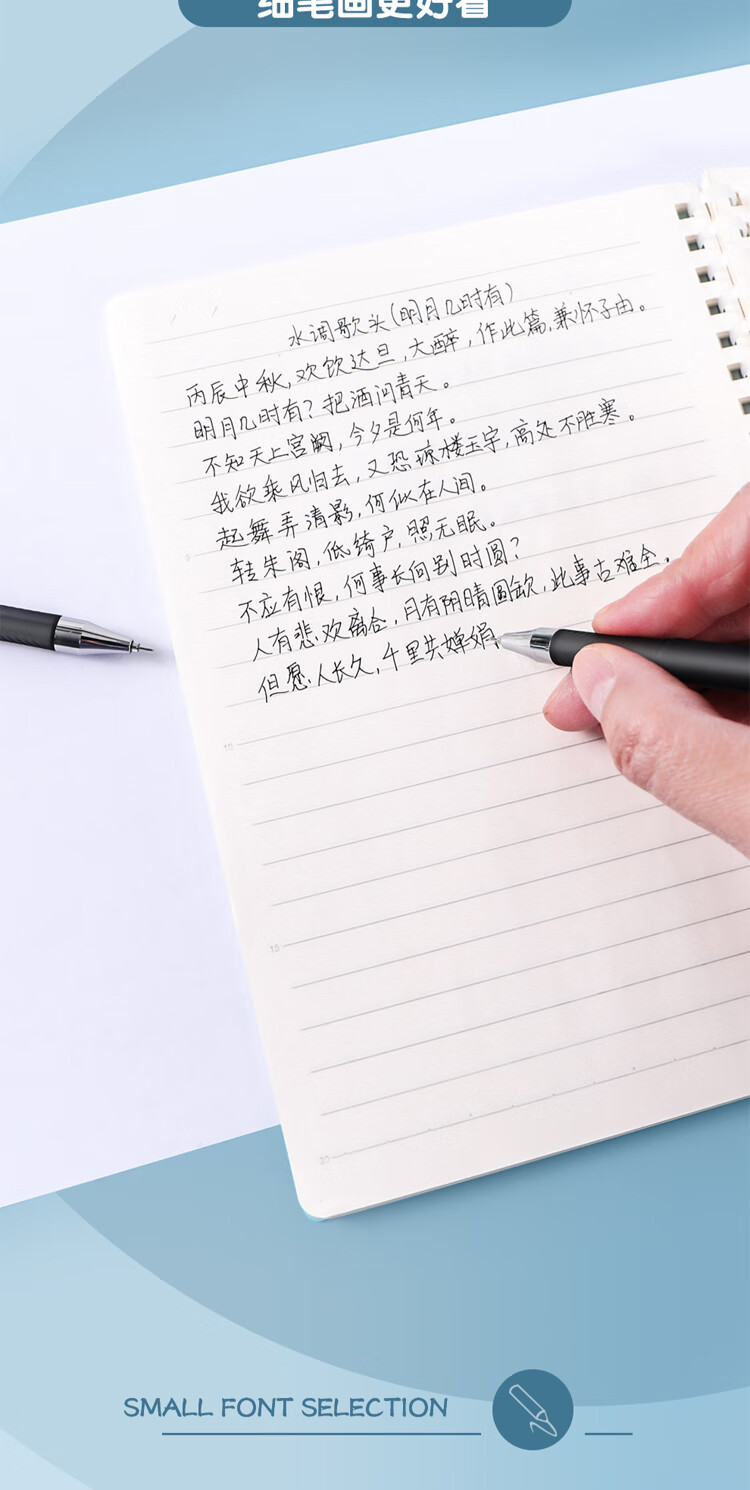 细笔画更好看
水调歌头(明月几时有)
丙辰中秋,欢饮达旦,大醉,作此篇,兼怀子由。
明月几时有?把酒问青天。
不知天上宫阙,今夕是何年。
我欲乘风归去,又恐琼楼玉宇,高处不胜寒。
起舞弄清影,何似在人间。
转朱阁,低绮户,照无眠。
不应有恨,何事长向别时圆?
人有悲欢离合,月有阴晴圆缺,此事古难全。
但愿人长久,千里共婵娟
10
15
20
SMALL FONT SELECTION